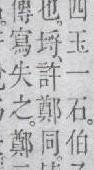 四玉一石伯
也埒許鄭同
傳寫失之鄭